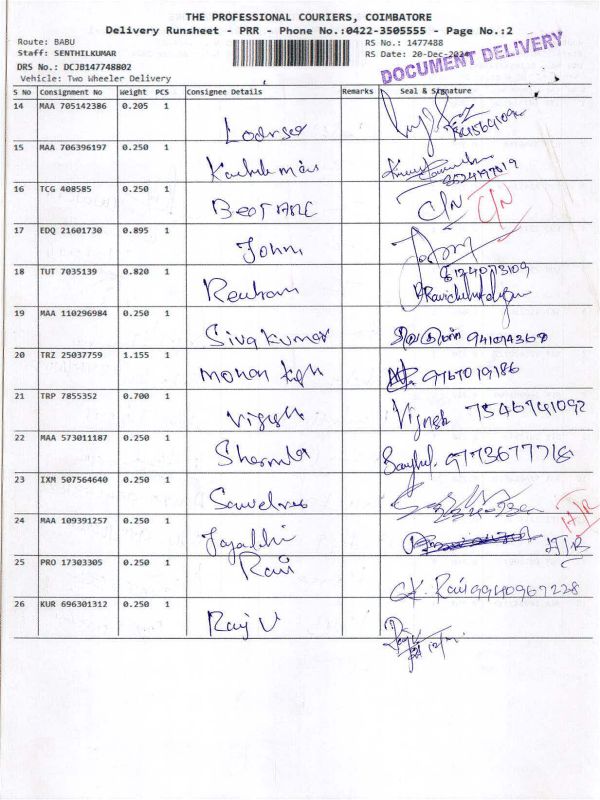 THE PROFESSIONAL COURIERS, COIMBATORE
Delivery Runsheet - PRR - Phone No.:0422-3505555 - Page No.:2
Route: BABU RS No.: 1477488
Staff: SENTHILKUMAR RS Date: 20-Dec-2024
DRS No.: DCJB147748802 DOCUMENT DELIVERY
Vehicle: Two Wheeler Delivery
S No Consignment No Weight PCS Consignee Details Remarks Seal & Signature
14 MAA 705142386 0.205 1
15 MAA 706396197 0.250 1
16 TCG 408585 0.250 1
C/N C/N
17 EDQ 21601730 0.895 1
John
18 TUT 7035139 0.820 1
19 MAA 110296984 0.250 1
Sivakumar
20 TRZ 25037759 1.155 1
Mohan 9767019786
21 TRP 7855352 0.700 1
Vignesh Vignesh 7546741092
22 MAA 573011187 0.250 1
Sharmila
23 IXM 507564640 0.250 1
24 MAA 109391257 0.250 1
25 PRO 17303305 0.250 1
Ravi
Ravi 9940967228
26 KUR 696301312 0.250 1
Raj V